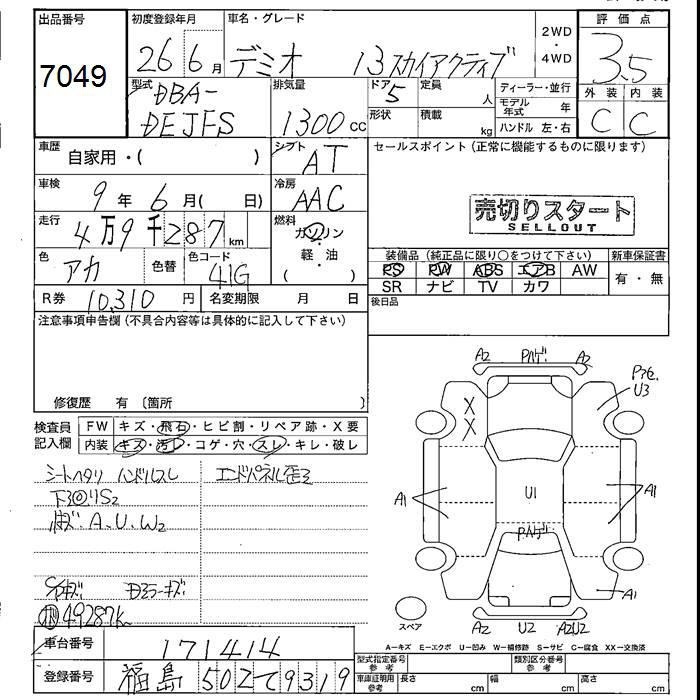 出品番号
7049
初度登録年月
26 6 月
車名・グレード
デミオ 13スカイアクティブ
2WD
・
4WD
評価点
3.5
型式
DBA-
DEJFS
排気量
1300 cc
ドア
5
定員
人
形状
積載
kg
ディーラー・並行
モデル年式 年
ハンドル 左・右
外装 内装
C C
車歴
自家用・( )
シフト
AT
車検
9 年 6 月( 日)
冷房
AAC
走行
4万9千287 km
燃料
ガソリン
・
軽・油
( )
色
アカ
色替
色コード
41G
R券 10,310 円
名変期限 月 日
セールスポイント (正常に機能するものに限ります)
売切りスタート
SELLOUT
装備品 (純正品に限り○をつけて下さい)
新車保証書
PS PW ABS エアB AW
有・無
SR ナビ TV カワ
後日品
注意事項申告欄 (不具合内容等は具体的に記入して下さい)
修復歴 有 〔箇所 〕
検査員
記入欄
FW キズ・飛石・ヒビ割・リペア跡・X要
内装 キズ・汚レ・コゲ・穴・スレ・キレ・破レ
シートヘタリ ハンドルスレ
エンドパネル歪ミ
A、U、W2
49287k
A2 A2
U3
X
X
A1 A1
U1
A2 U2 A2U2
スペア
A−キズ E−エクボ U−凹み W−補修跡 S−サビ C−腐食 XX−交換済
車台番号
171414
登録番号
福島 502 て 9319
型式指定番号
参考
類別区分番号
参考
車庫証明用
参考
長さ cm
幅 cm
高さ cm